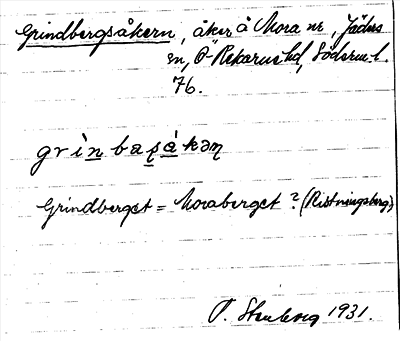 Grindbergsåkern, åker å Mora nr, Jäders
sn, Ö-Rekarne hd, Söderm. l.
76.
grìnbaʂåkəɳ
Grindberget = Moraberget? (Ristningsberg)
P. Stenberg 1931.